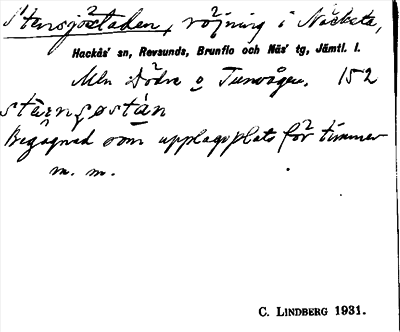 Stensgöstaden, röjning i Näcksta,
Hackås' sn, Revsunds, Brunflo och Näs' tg, Jämtl. l.
Mln Dödre o Tunvågen. 152
Begagnad som upplagsplats för timmer
m. m.
C. LINDBERG 1931.